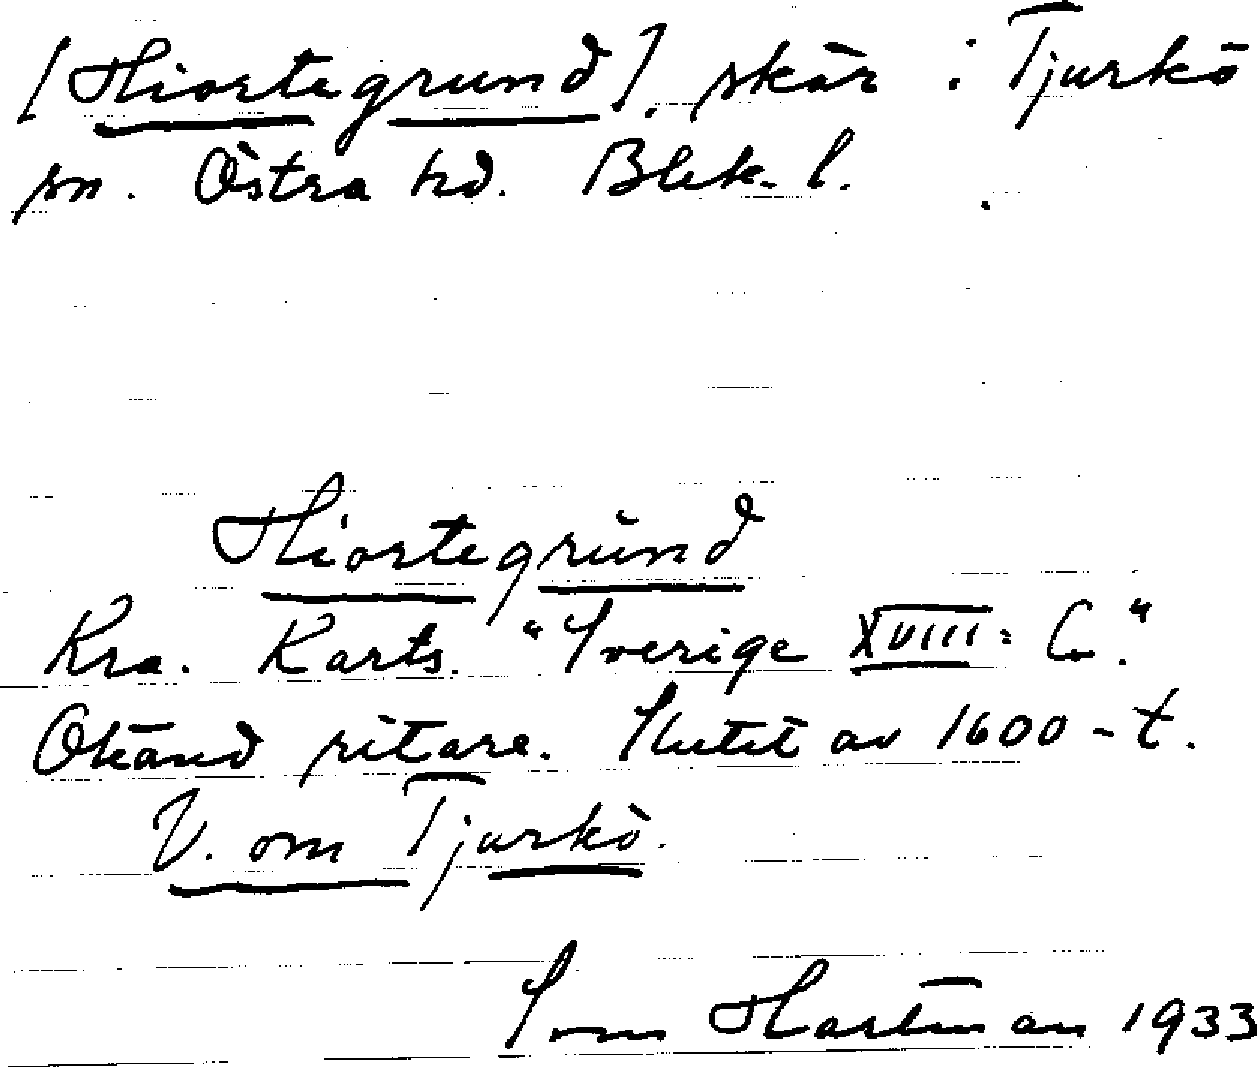 [Hiortegrund], skär i Tjurkö
sn. Östra hd. Blek. l.
Hiortegrŭnd
Kra. Karts. "Sverige XVIII: C."
Okänd ritare. Slutet av 1600-t.
V. om Tjurkö.
Sven Hartman 1933